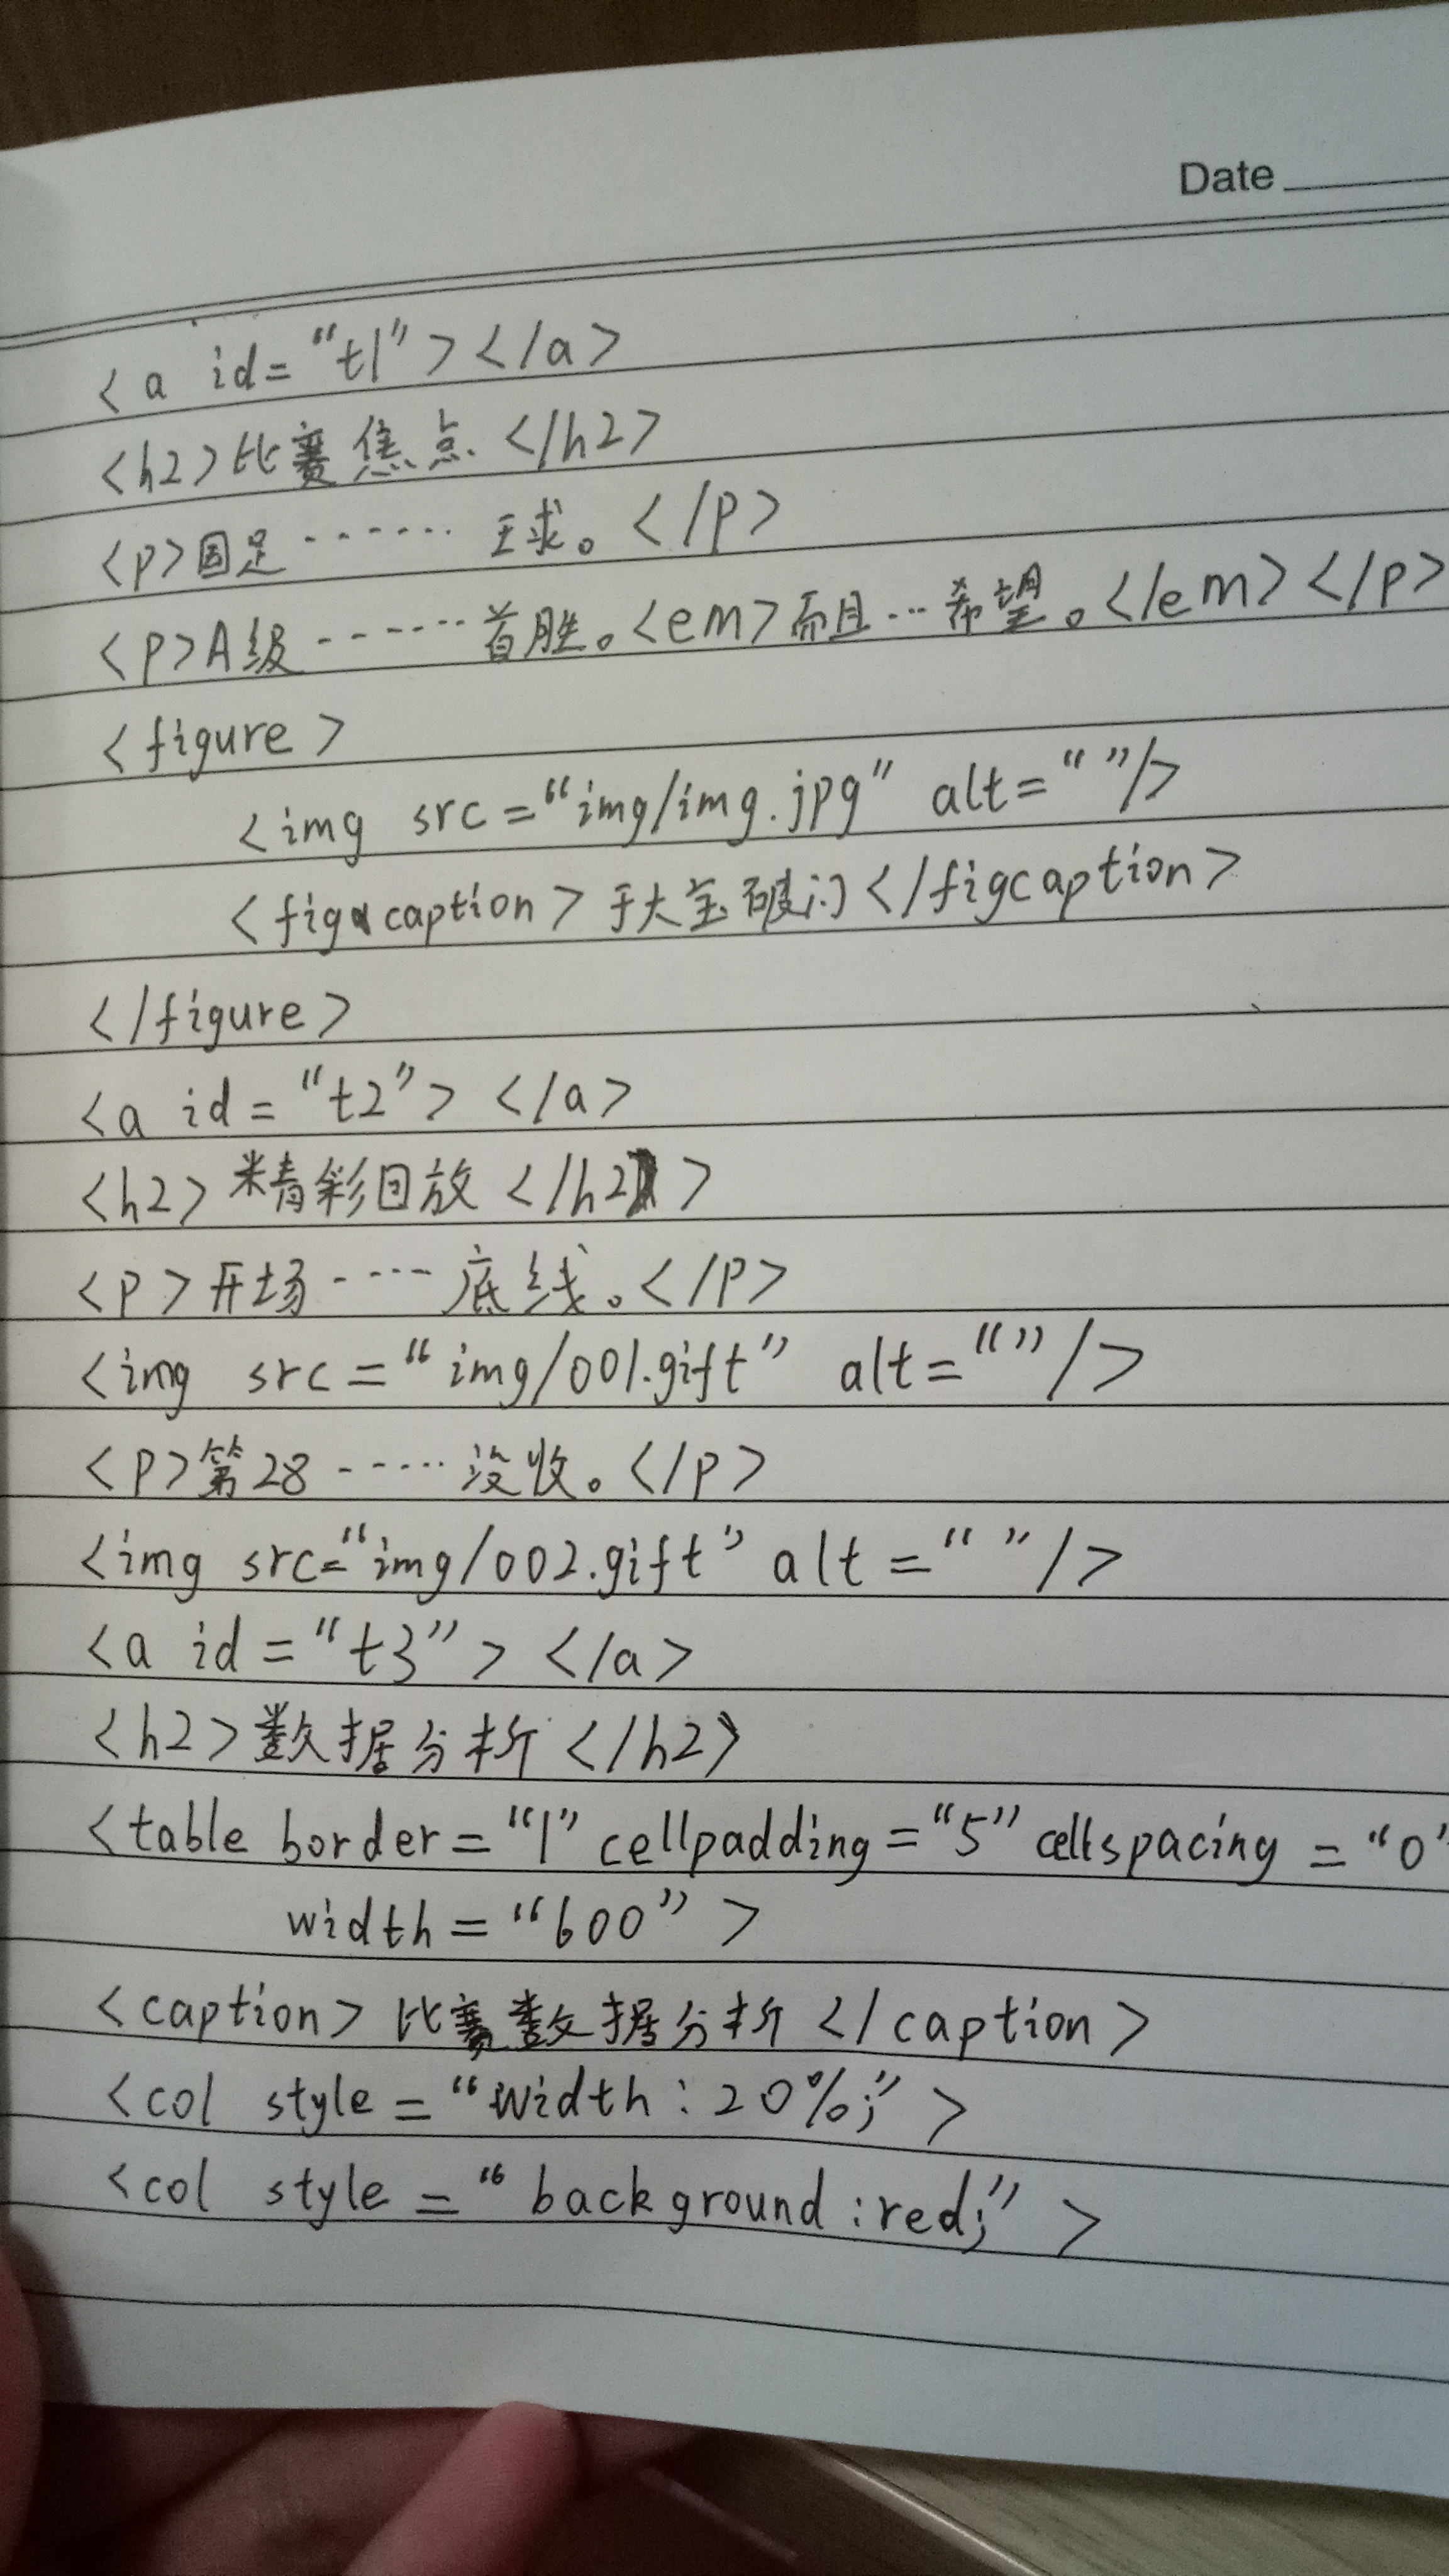 Date
<a id="t1"></a>
<h2>比赛焦点</h2>
<p>国足······· 王求。</p>
<p>A级·······首胜。<em>而且···希望。</em></p>
<figure>
<img src="img/img.jpg" alt=" "/>
<figcaption>于大宝破门</figcaption>
</figure>
<a id="t2"></a>
<h2>精彩回放</h2>
<p>开场·····底线。</p>
<img src="img/001.gift" alt=""/>
<p>第28·····没收。</p>
<img src="img/002.gift" alt=" "/>
<a id="t3"></a>
<h2>数据分析</h2>
<table border="1" cellpadding="5" cellspacing="0"
width="600">
<caption>比赛数据分析</caption>
<col style="width:20%;">
<col style="background:red;">